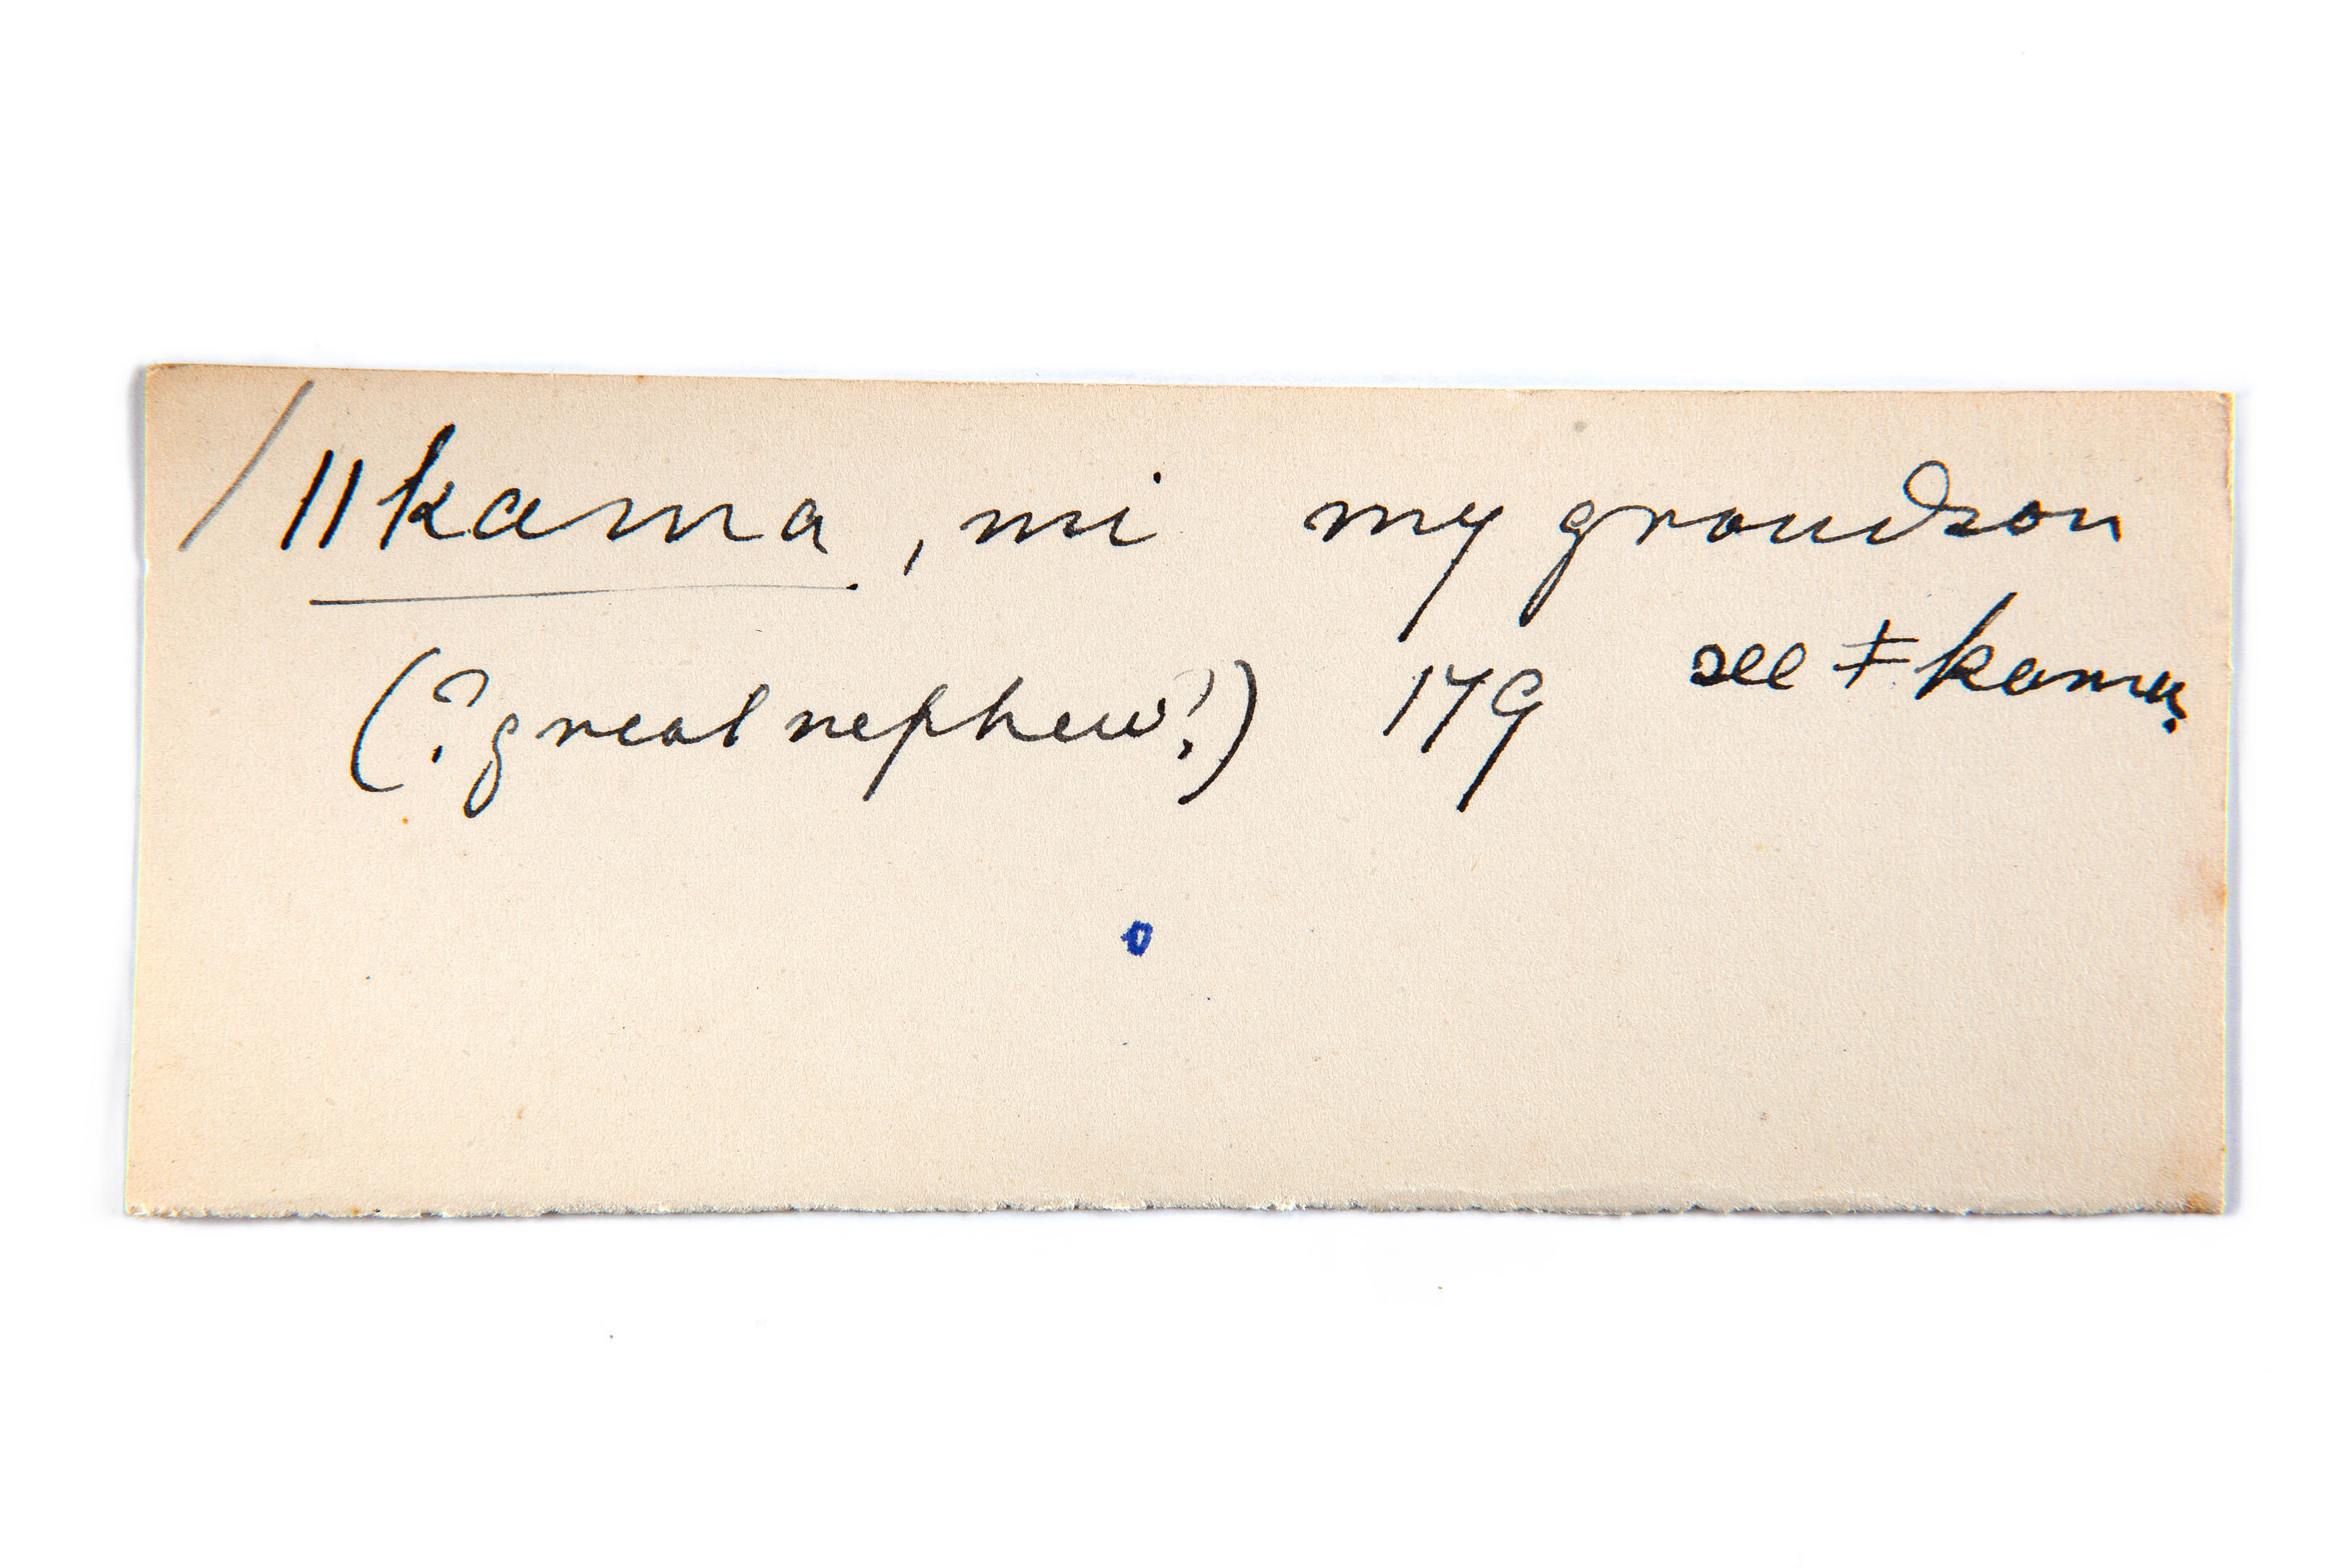 / ǁkama, mi my grandson
(? great nephew?) 179 see ǂkama.